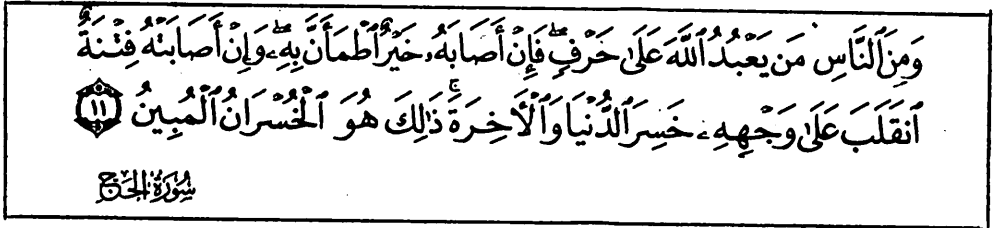 وَمِنَ ٱلنَّاسِ مَن يَعْبُدُ ٱللَّهَ عَلَىٰ حَرْفٍۖ فَإِنْ أَصَابَهُۥ خَيْرٌ ٱطْمَأَنَّ بِهِۦۖ وَإِنْ أَصَابَتْهُ فِتْنَةٌ
ٱنقَلَبَ عَلَىٰ وَجْهِهِۦ خَسِرَ ٱلدُّنْيَا وَٱلْأَخِرَةَۚ ذَٰلِكَ هُوَ ٱلْخُسْرَانُ ٱلْمُبِينُ ۝١١
سُورَةُ الحَجّ